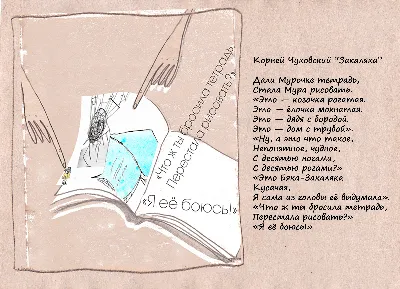 «Что ж ты бросила тетрадь,
Перестала рисовать?»
«Я её боюсь!»
Корней Чуковский "Закаляка"
Дали Мурочке тетрадь,
Стала Мура рисовать.
«Это — козочка рогатая.
Это — ёлочка мохнатая.
Это — дядя с бородой.
Это — дом с трубой».
«Ну, а это что такое,
Непонятное, чудное,
С десятью ногами,
С десятью рогами?»
«Это Бяка-Закаляка
Кусачая,
Я сама из головы её выдумала».
«Что ж ты бросила тетрадь,
Перестала рисовать?»
«Я её боюсь!»